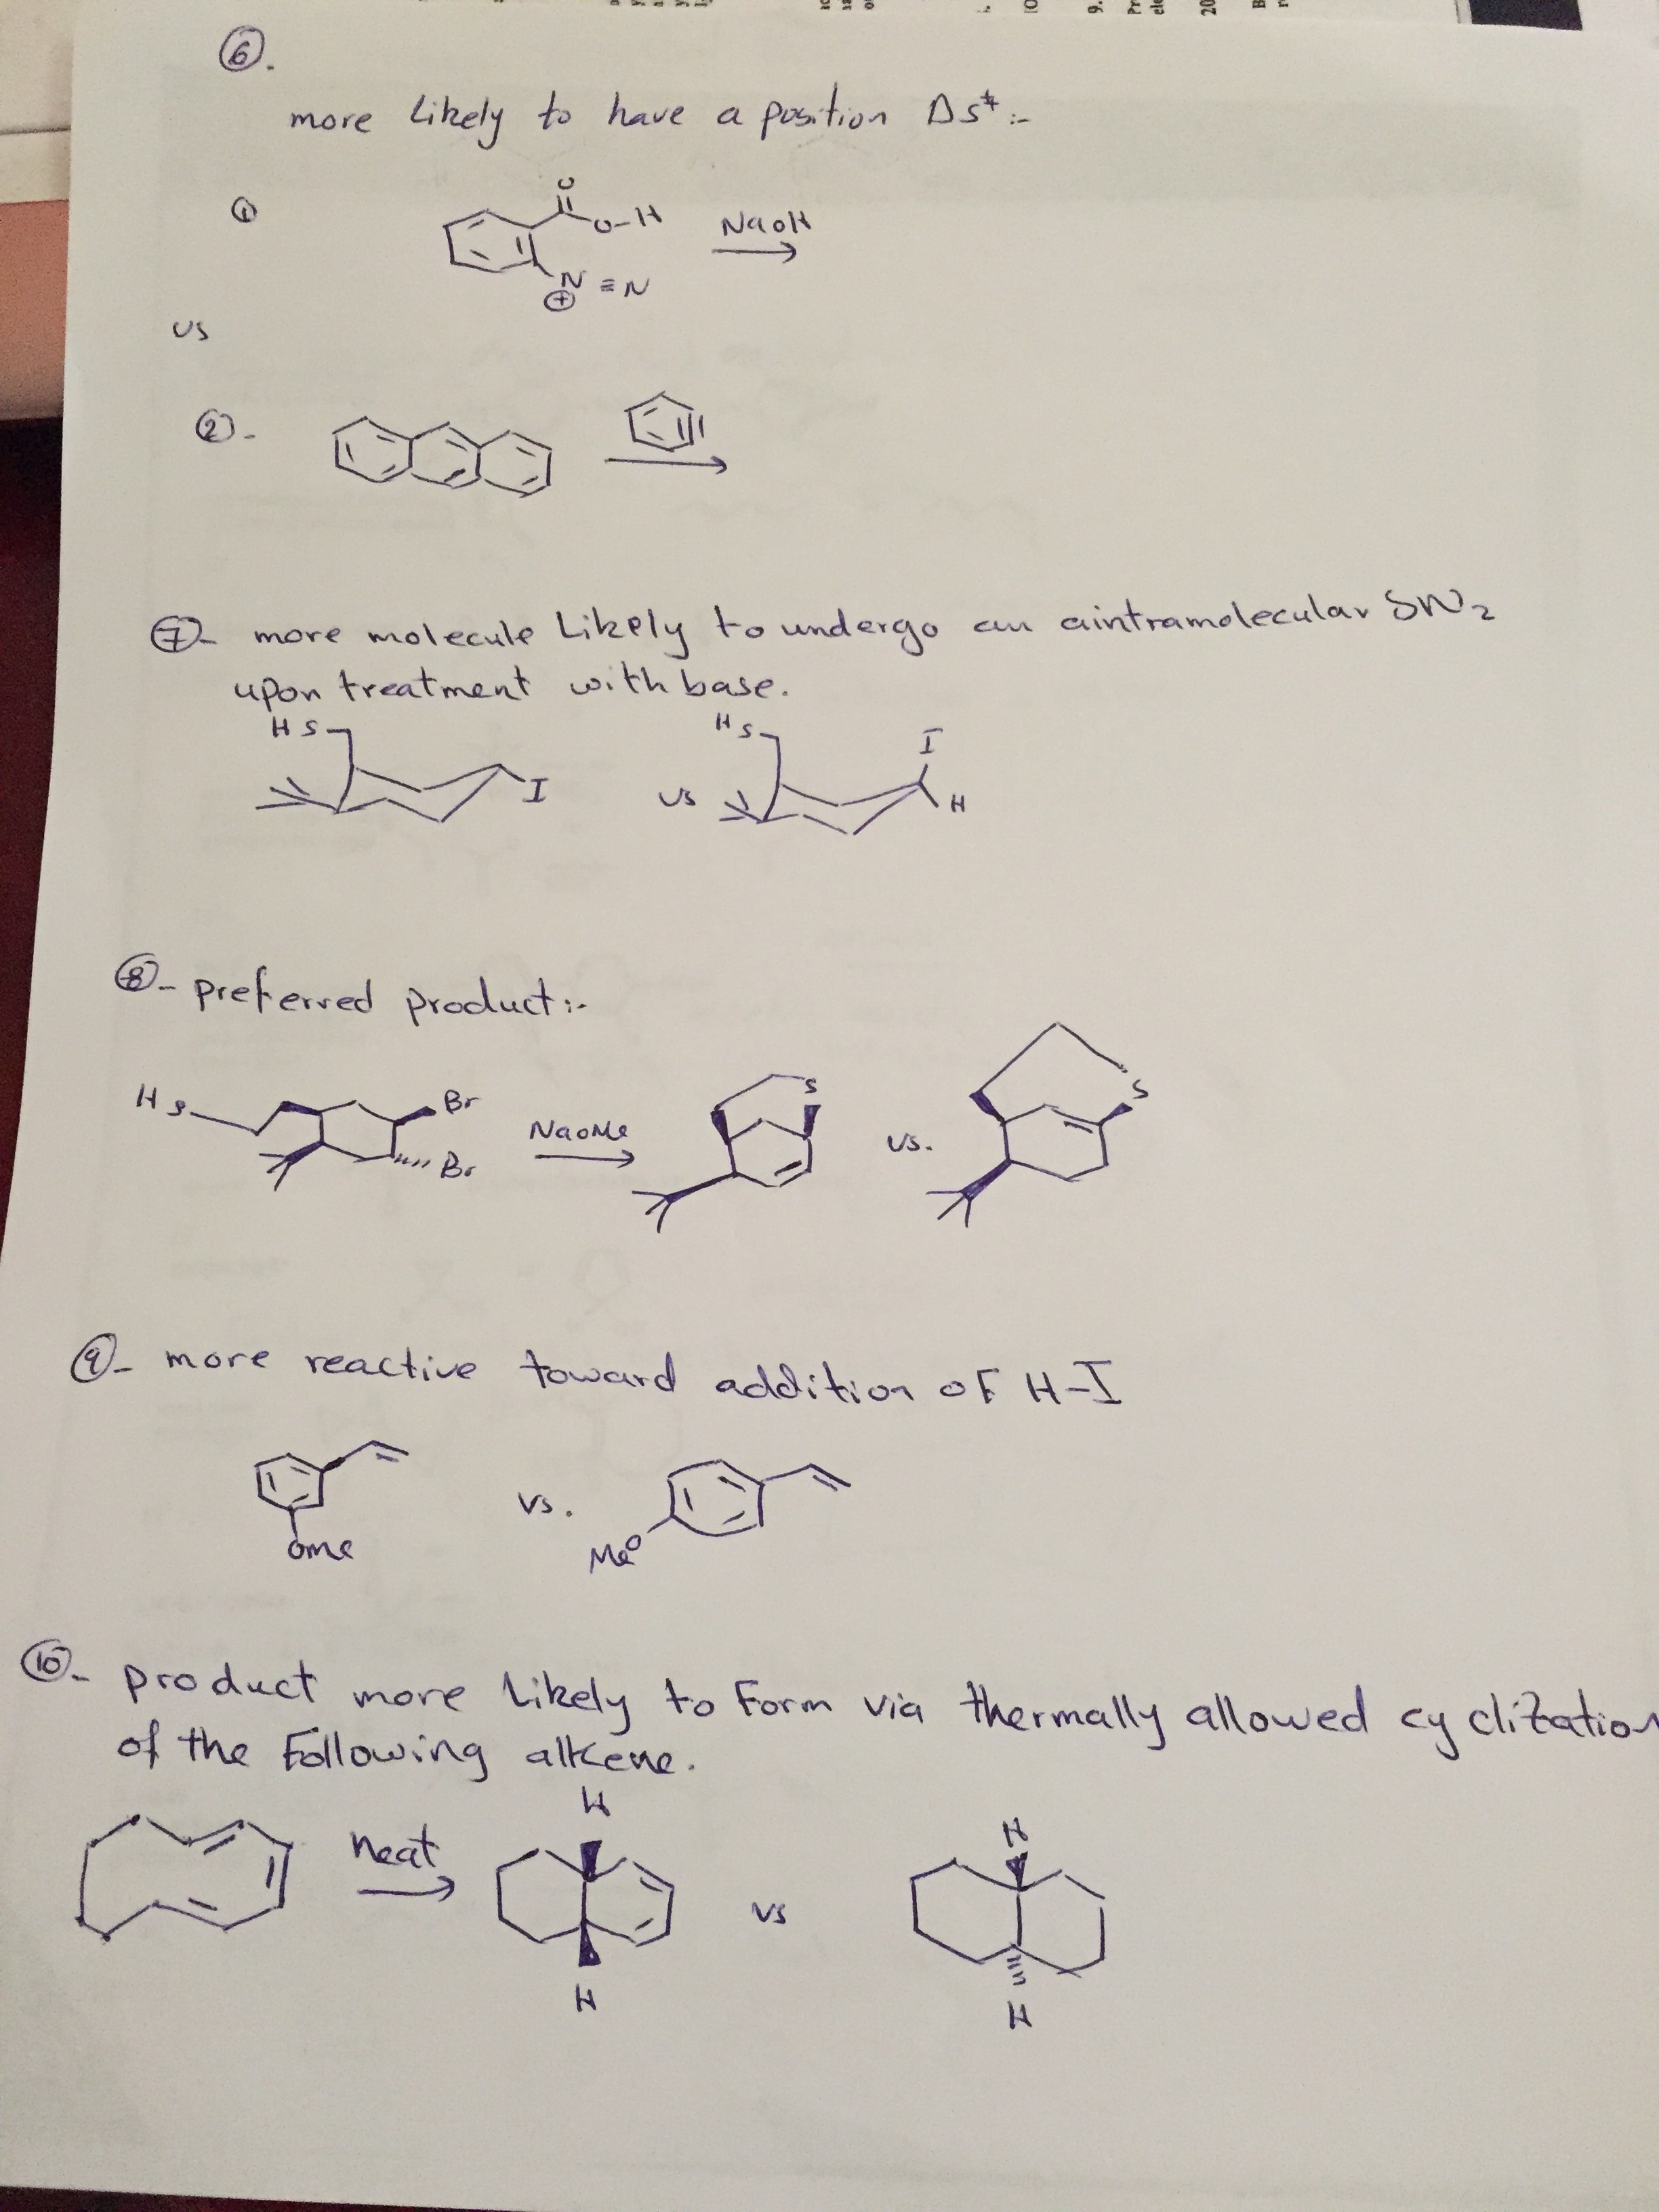 6.
more likely to have a position ΔS‡:-
① O
O-H NaOH
N ≡N
⊕
vs
②-
⑦- more molecule likely to undergo an aintramolecular SN2
upon treatment with base.
HS I vs HS I H
⑧- preferred product:-
HS Br Br NaOMe S vs. S
⑨- more reactive toward addition of H-I
OMe vs. MeO
⑩- product more likely to form via thermally allowed cyclization
of the following alkene.
heat H H vs H H